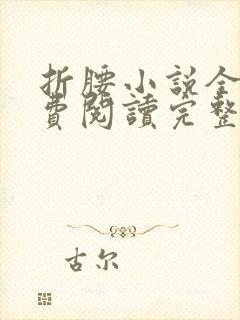 折腰小説全
費閱讀完整
古尔